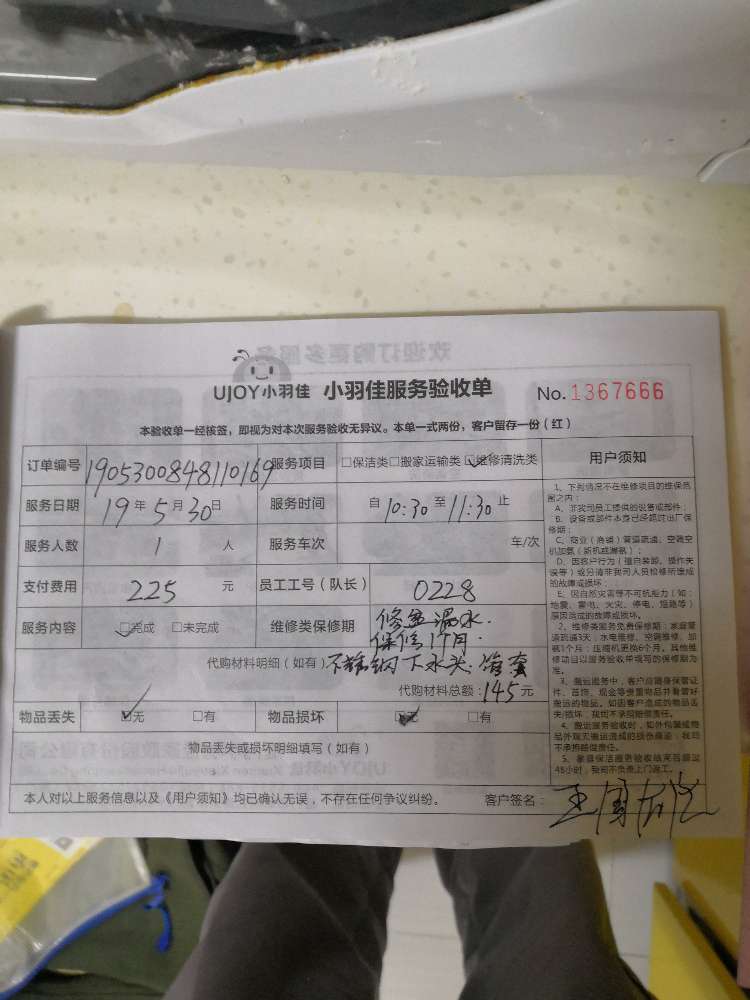 UJOY小羽佳 小羽佳服务验收单 No.1367666
本验收单一经核签，即视为对本次服务验收无异议。本单一式两份，客户留存一份（红）
订单编号 1905300848110169 服务项目 □保洁类 □搬家运输类 □维修清洗类 用户须知
服务日期 19年5月30日 服务时间 自10:30至11:30止
服务人数 1 人 服务车次 车/次
支付费用 225 元 员工工号（队长） 0228
服务内容 □完成 □未完成 维修类保修期 漏水
保修1个月.
代购材料明细（如有）不锈钢下水头.
代购材料总额：145元
物品丢失 □无 □有 物品损坏 □无 □有
物品丢失或损坏明细填写（如有）
本人对以上服务信息以及《用户须知》均已确认无误，不存在任何争议纠纷。 客户签名：
1、下列情况不在维修项目的维保范
围之内：
A、非我司员工提供的设备或部件；
B、设备或部件本身已经超过出厂保
修期；
C、商业（商铺）管道疏通、空调空
机加氨（新机或漏氨）；
D、因客户行为（擅自装卸、操作失
误等）或另请非我司人员检修所造成
的故障或损坏；
E、因自然灾害等不可抗能力（如：
地震、雷电、火灾、停电、短路等）
原因造成的故障或损坏。
2、维修类服务免费保修期：家庭管
道疏通3天；水电维修、空调维修、卸
载1个月；压缩机更换6个月。其他维
修项目以服务验收单填写的保修期为
准。
3、搬运服务中，客户应随身保管证
件、首饰、现金等贵重物品并看管好
搬运的物品。如因客户造成的物品丢
失/损坏，我司不承担赔偿责任。
4、搬运服务验收时，如外包装或物
品外观无搬运造成的损伤痕迹，我司
不承担赔偿责任。
5、家庭保洁服务验收结束后超过
48小时，我司不负责上门返工。
欢迎订购更多服务